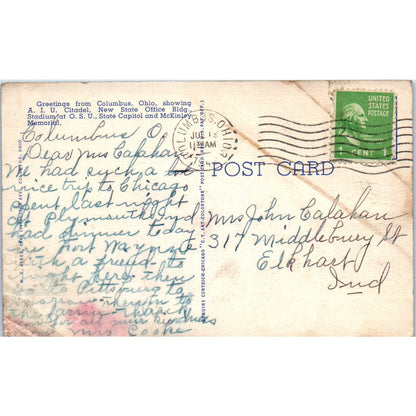 Greetings from Columbus, Ohio, showing
A. I. U. Citadel, New State Office Bldg.,
Stadium at O. S. U., State Capital and McKinley
Memorial.
COLUMBUS, OHIO
11 AM
UNITED
STATES
POSTAGE
1 CENT 1
POST CARD
Columbus O.
Dear Mrs Calahan
We had such a
nice trip to Chicago
spent last night
at Plymouth Ind
had dinner today
in Fort Wayne
with a friend to
night here then
go to Pittsburg to
morrow then on to
the farm
for all your kindness
Mrs Cooke
Mrs John Calahan
317 Middlebury St
Elkhart
Ind